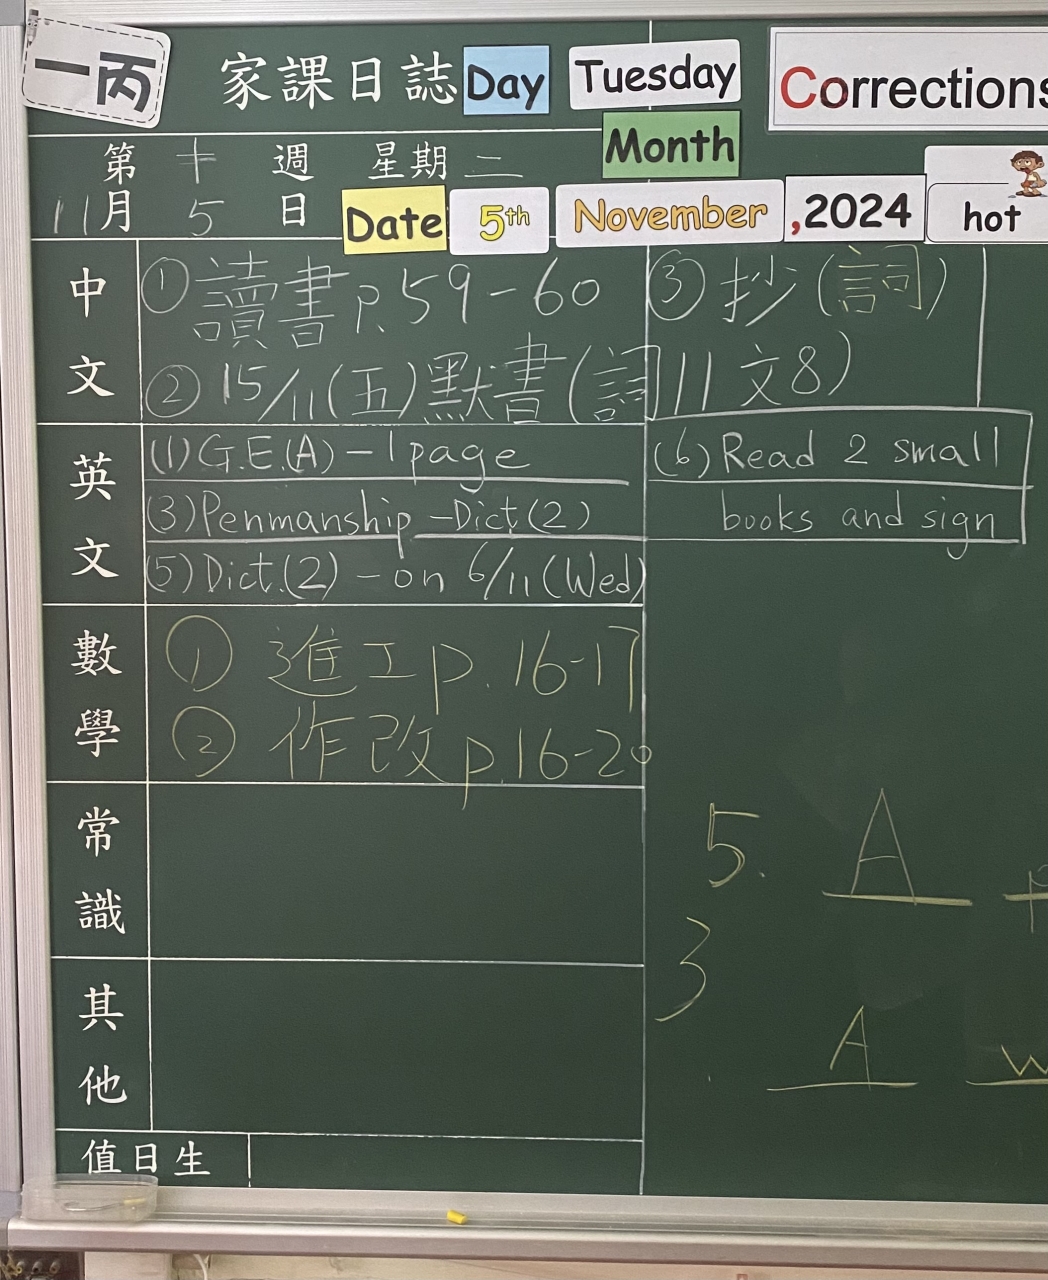 一丙
家課日誌 Day Tuesday
Corrections
Month
第十週 星期二
11月5日
Date 5th November ,2024
hot
中文
① 讀書 p.59-60
② 15/11(五)默書(詞11 文8)
③ 抄(詞)
英文
(1) G.E.(A) - 1 page
(3) Penmanship - Dict(2)
(5) Dict.(2) - on 6/11 (Wed)
(6) Read 2 small
books and sign
數學
① 進工 p.16-17
② 作改 p.16-20
常識
5. A
3
其他
A w
值日生